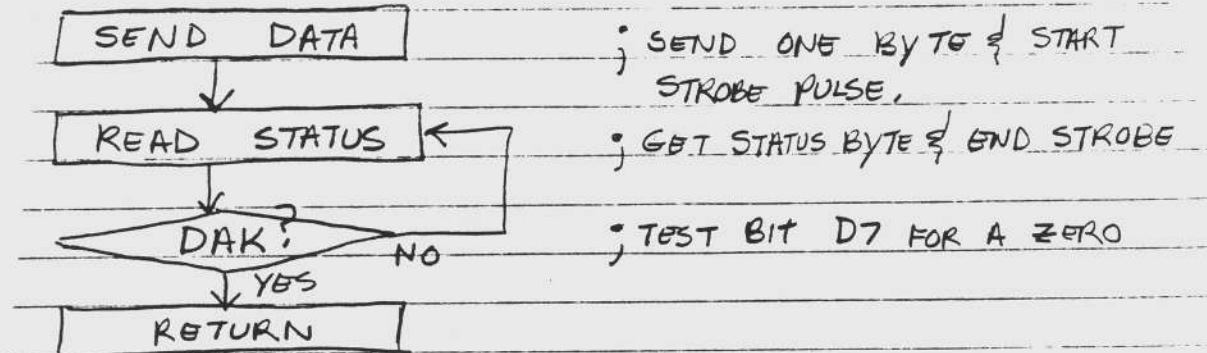 SEND DATA ; SEND ONE BYTE & START
STROBE PULSE.
READ STATUS ; GET STATUS BYTE & END STROBE
DAK? ; TEST BIT D7 FOR A ZERO
NO
YES
RETURN